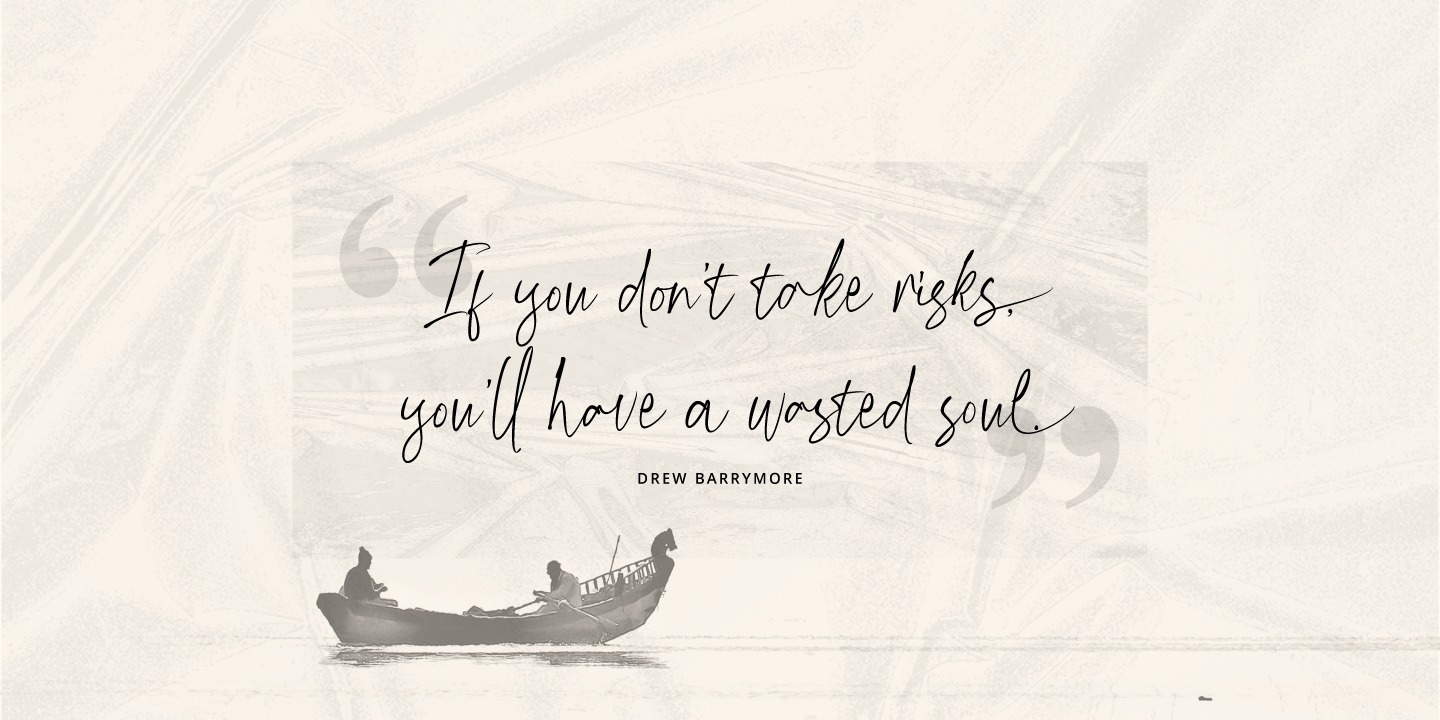 “If you don't take risks,
you'll have a wasted soul.”
DREW BARRYMORE